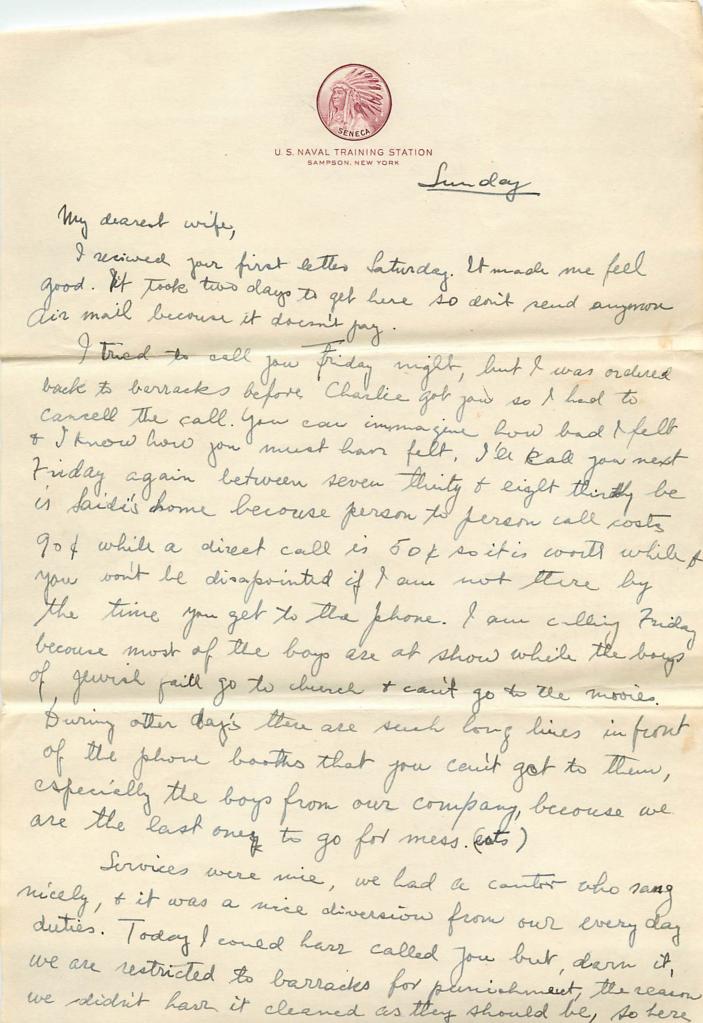 SENECA
U. S. NAVAL TRAINING STATION
SAMPSON, NEW YORK
Sunday
My dearest wife,
I recived your first letter Saturday. It made me feel
good. It took two days to get here so don't send anymore
air mail because it doesn't pay.
I tried to call you Friday night, but I was ordered
back to barracks before Charlie got you so I had to
cancell the call. You can immagine how bad I felt
& I know how you must have felt. I'll call you next
Friday again between seven thirty & eight thirty be
is Saidi's home because person to person call costs
90¢ while a direct call is 50¢ so it is worth while &
you won't be disapointed if I am not there by
the time you get to the phone. I am calling Friday
because most of the boys are at show while the boys
of Jewish faith go to church & can't go to the movies.
During other days there are such long lines in front
of the phone booths that you can't get to them,
especially the boys from our company, because we
are the last ones to go for mess. (eats)
Services were nice, we had a cantor who sang
nicely, & it was a nice diversion from our every day
duties. Today I could have called you but, darn it,
we are restricted to barracks for punishment, the reason
we didn't have it cleaned as they should be, so here